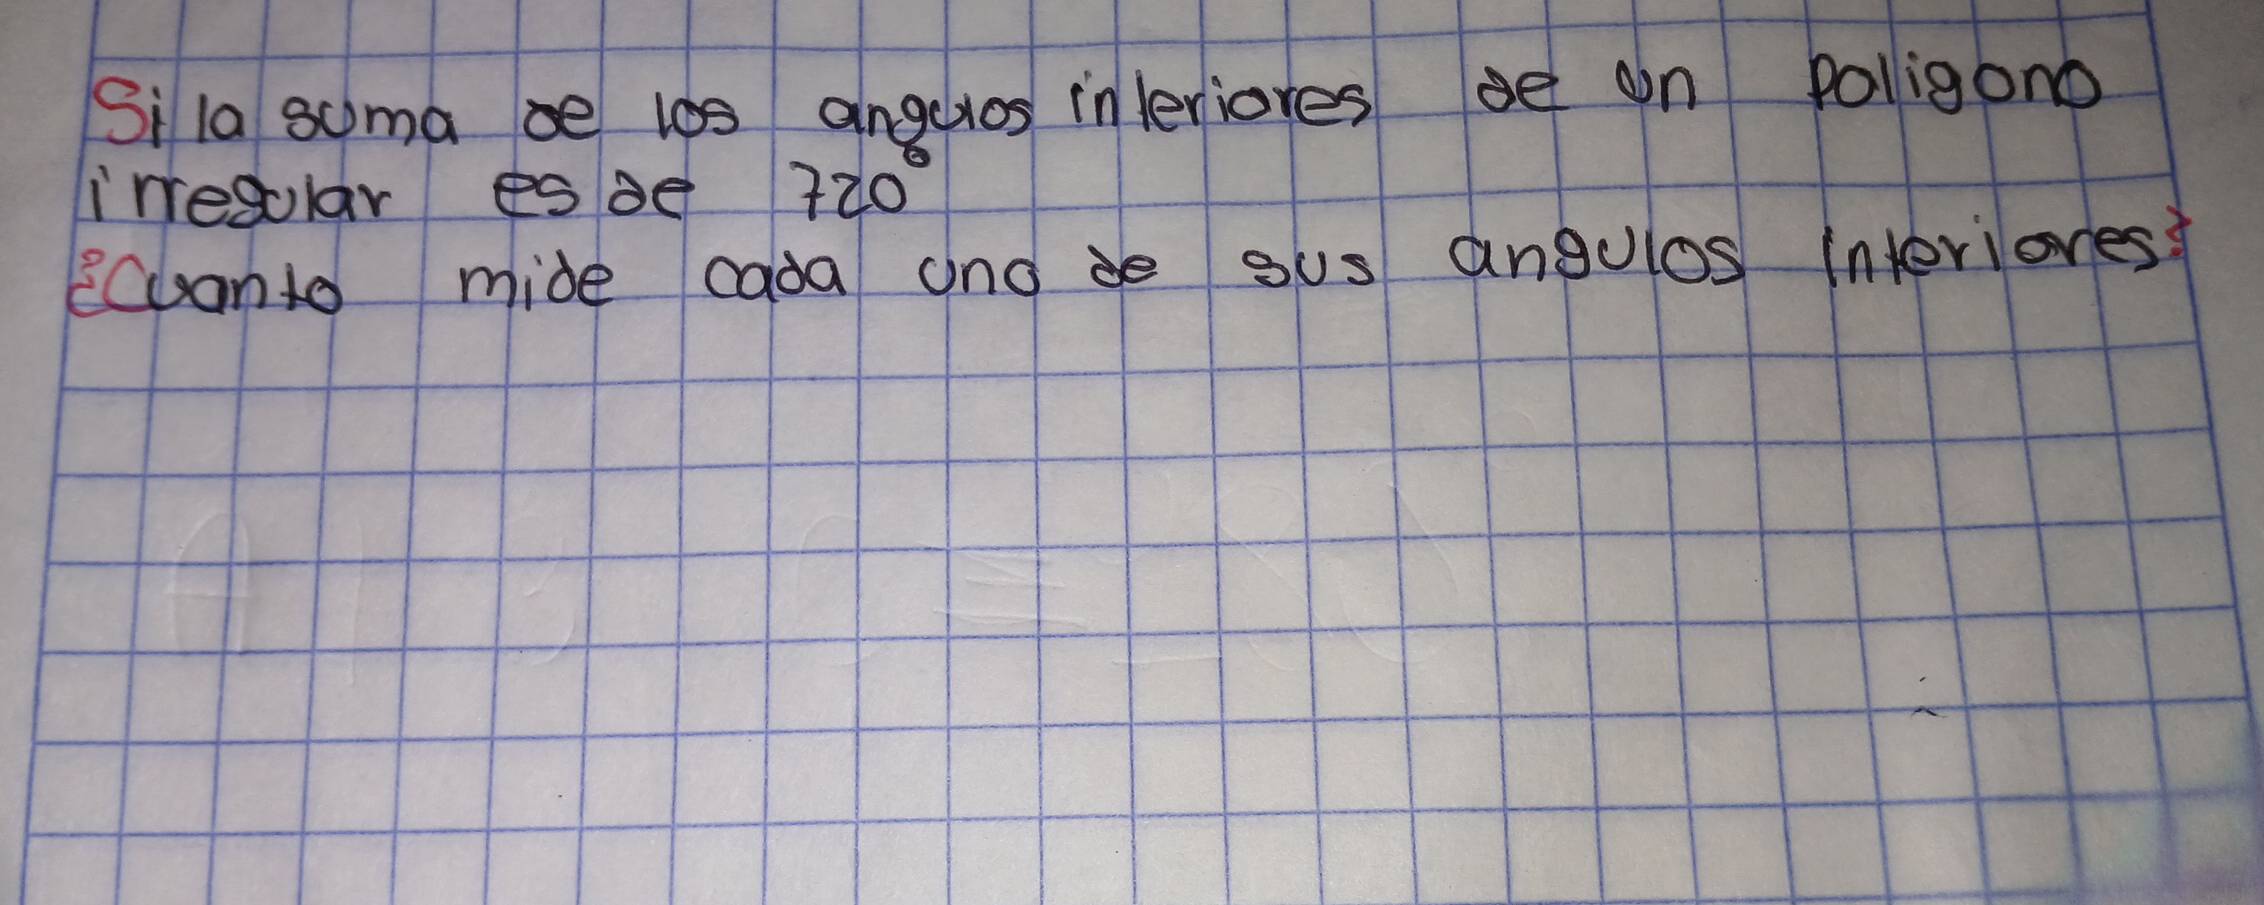 Si la suma de los angulos interiores de un poligono
irregular es de 720°
¿Cuanto mide cada uno de sus angulos interiores?